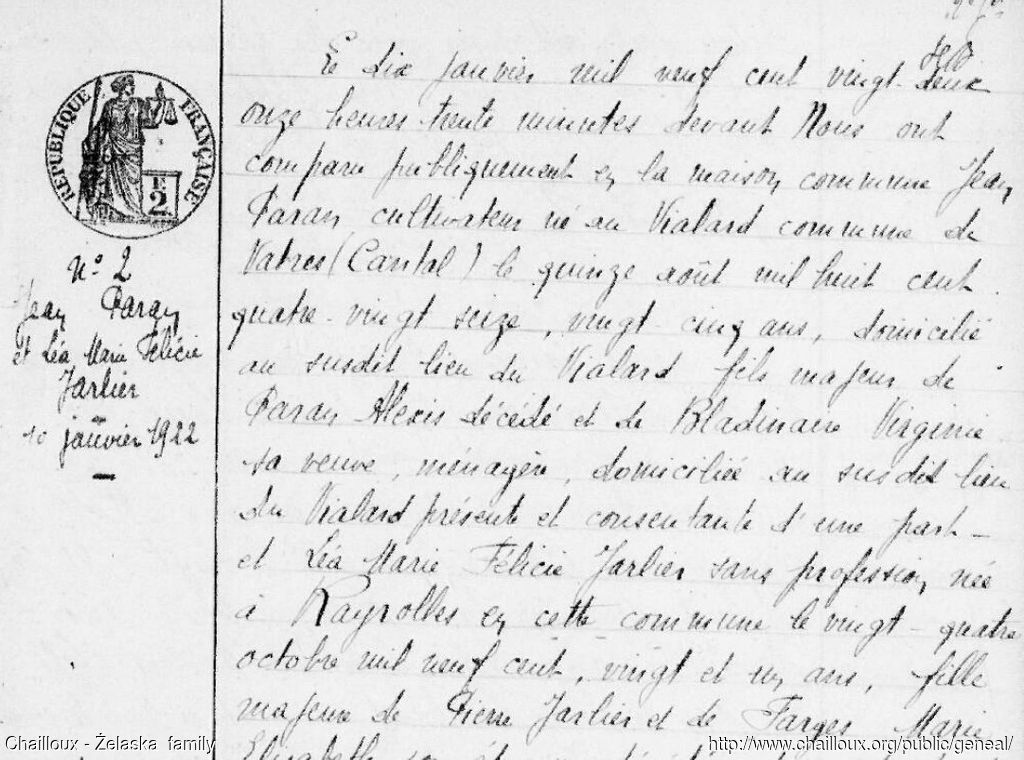 RÉPUBLIQUE FRANÇAISE
2
N° 2
Jean Paran
et Léa Marie Félicie
Jarlier
10 janvier 1922
Le dix janvier mil neuf cent vingt-deux
onze heures trente minutes devant Nous ont
comparu publiquement en la maison commune Jean
Paran cultivateur né au Vialard commune de
Vabres (Cantal) le quinze août mil huit cent
quatre-vingt seize, vingt-cinq ans, domicilié
au susdit lieu du Vialard fils majeur de
Paran Alexis décédé et de Bladinaire Virginie
sa veuve, ménagère, domiciliée au susdit lieu
du Vialard présente et consentante d'une part -
et Léa Marie Félicie Jarlier sans profession, née
à Rayrolles en cette commune le vingt-quatre
octobre mil neuf cent, vingt et un ans, fille
majeure de Pierre Jarlier et de Farges Marie
Elisabeth
Chailloux - Želaska family
http://www.chailloux.org/public/geneal/